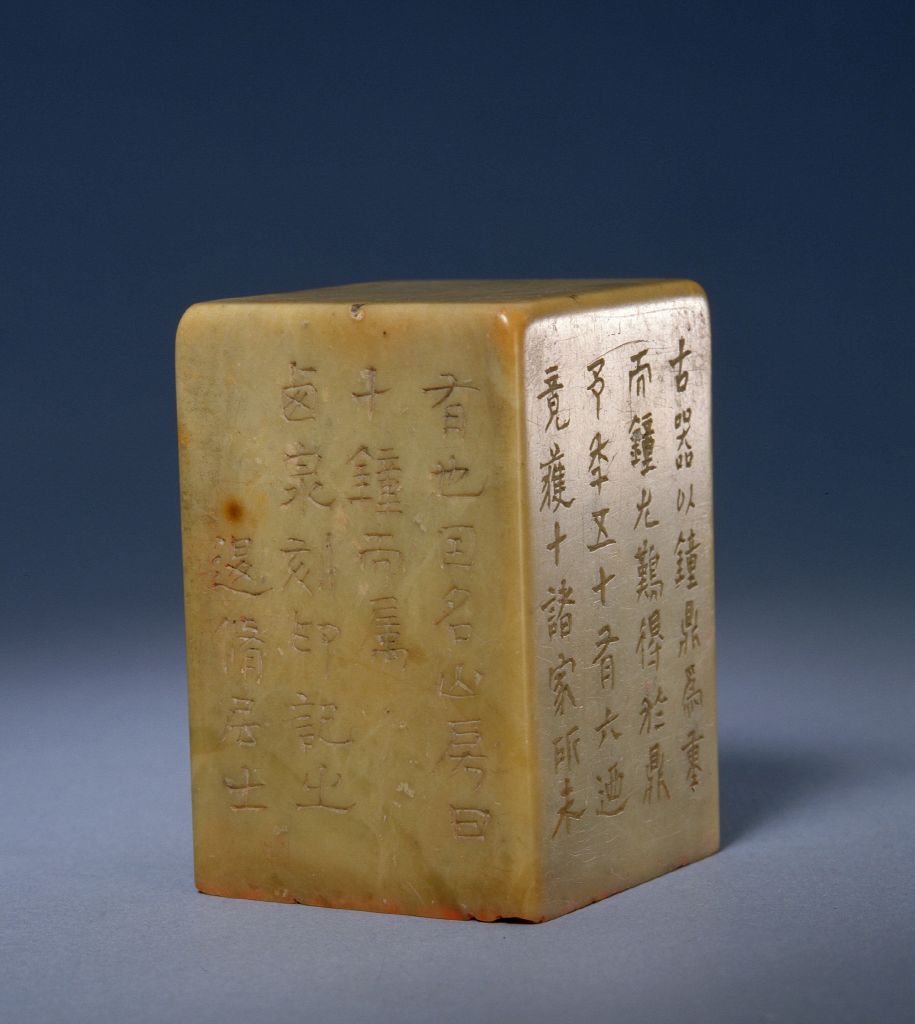 古器以鐘鼎爲重
而鐘尤難得於鼎
予年五十有六迺
竟獲十諸家所未
有也因名山房曰
十鐘而屬
卥泉刻印記之
退脩居士